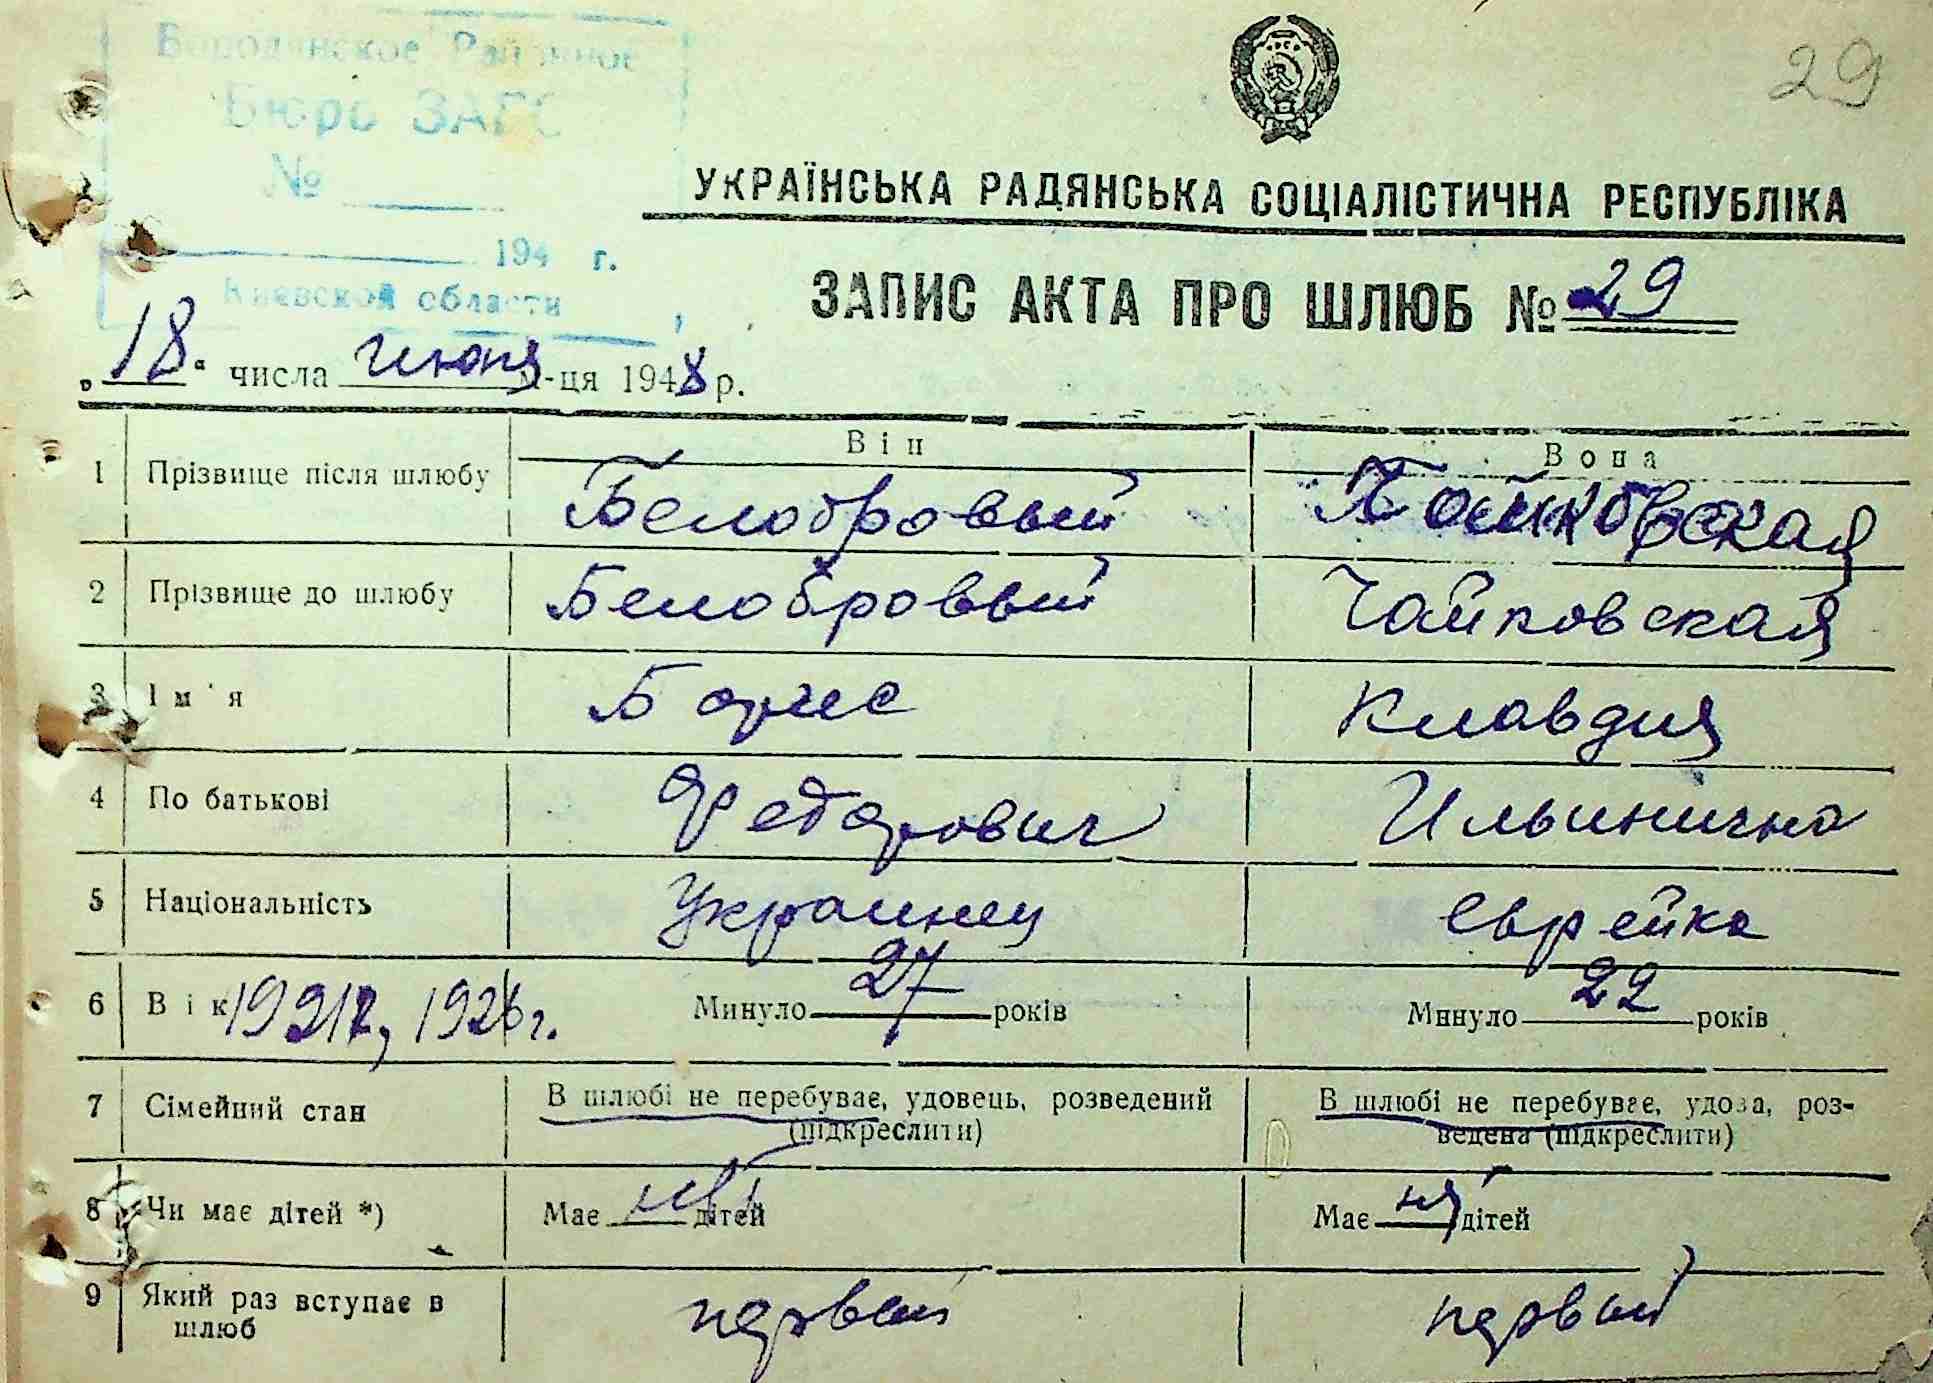 29
Бородянское Районное
Бюро ЗАГС
№
194 г.
Киевской области
УКРАЇНСЬКА РАДЯНСЬКА СОЦІАЛІСТИЧНА РЕСПУБЛІКА
ЗАПИС АКТА ПРО ШЛЮБ № 29
„18“ числа июня м-ця 1948 р.
Він Вона
1 Прізвище після шлюбу Белобровый
2 Прізвище до шлюбу Белобровый Чайковская
3 Ім'я Борис Клавдия
4 По батькові Федорович Ильинична
5 Національність Украинец еврейка
6 Вік 1921г, 1926г. Минуло 27 років Минуло 22 років
7 Сімейний стан В шлюбі не перебуває, удовець, розведений (підкреслити) В шлюбі не перебуває, удова, роз-
ведена (підкреслити)
8 Чи має дітей *) Має нет дітей Має дітей
9 Який раз вступає в первый первый
шлюб